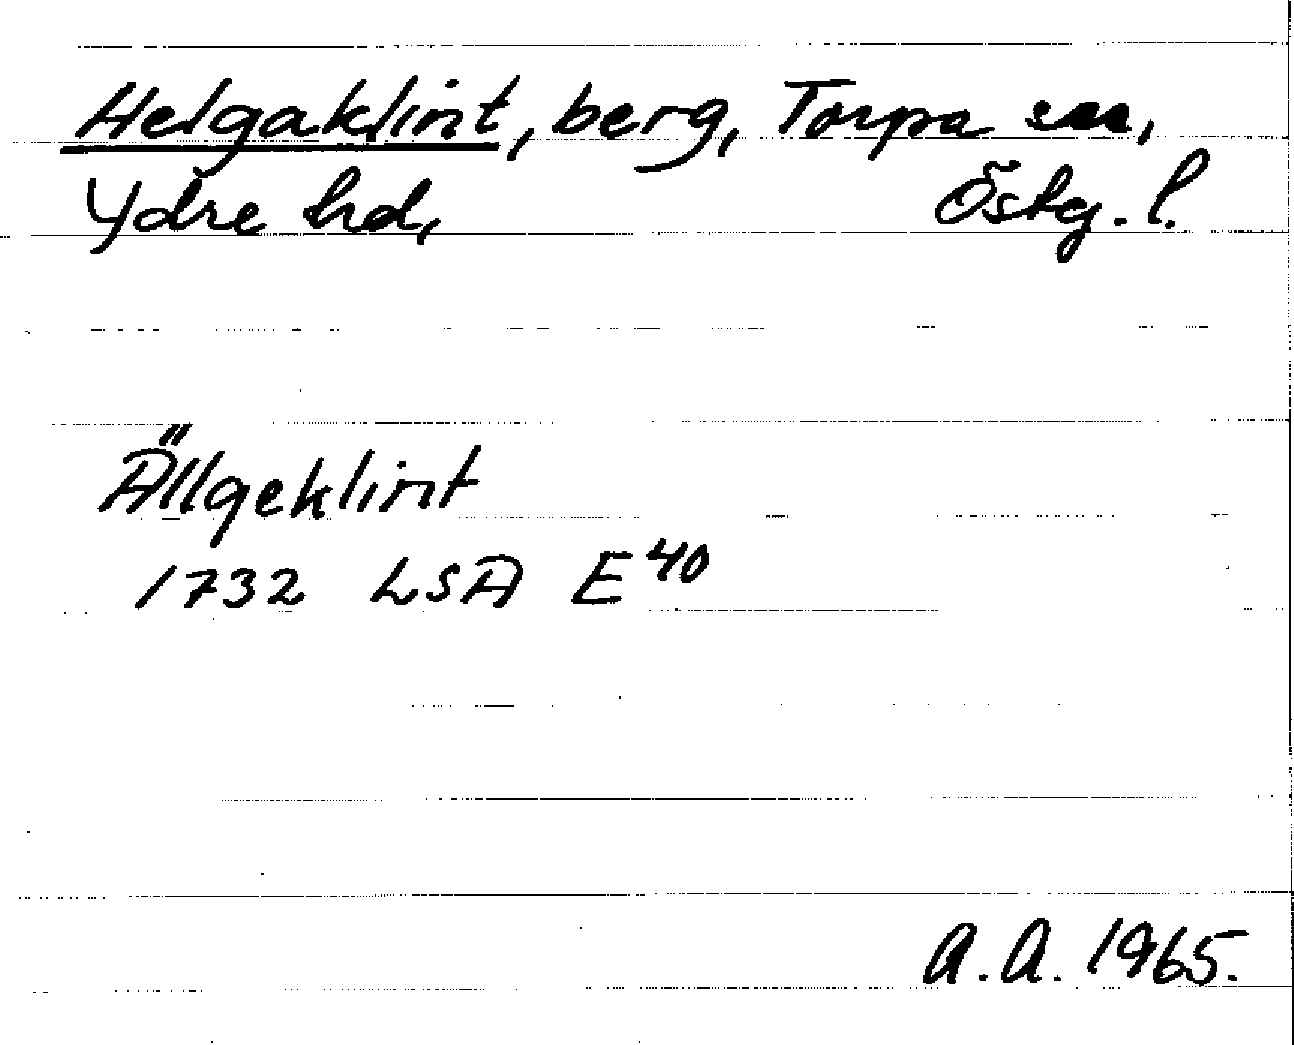 Helgaklint, berg, Torpa sn,
Ydre hd, Östg. l.
Ällgeklint
1732 LSA E 40
A.A. 1965.